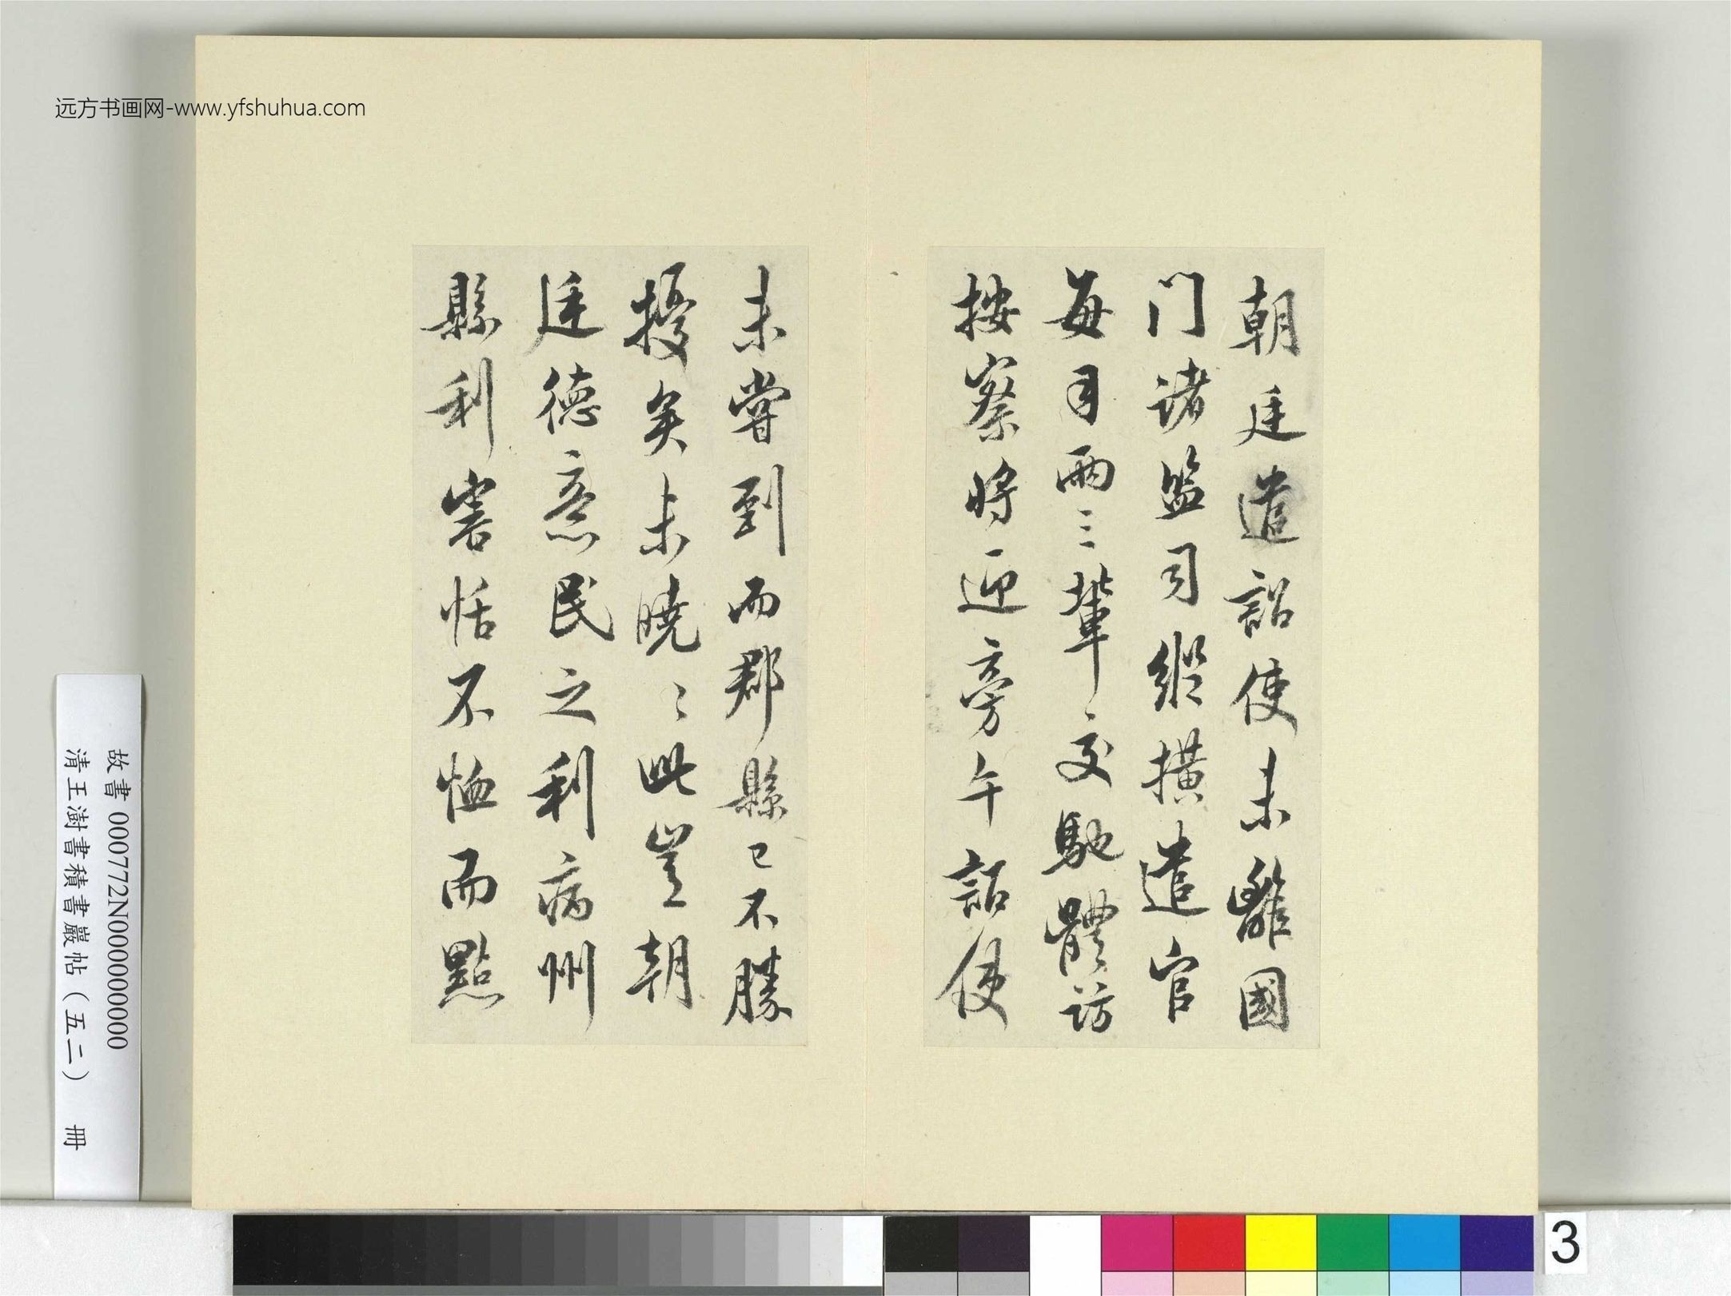 远方书画网-www.yfshuhua.com
朝廷遣詔使未離國
门诸監司縱横遣官
每月兩三輩交馳體訪
按察將迎旁午詔使
未嘗到而郡縣已不勝
擾矣未曉〻此豈朝
廷德意民之利病州
縣利害恬不恤而點
故書 000772N000000000
清王澍書積書巖帖(五二) 冊
3